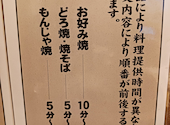 により料理提供時間が異な
内容により順番が前後する
ます。
お好み焼 10分〜
どろ焼・焼そば 5分〜
もんじゃ焼 5分